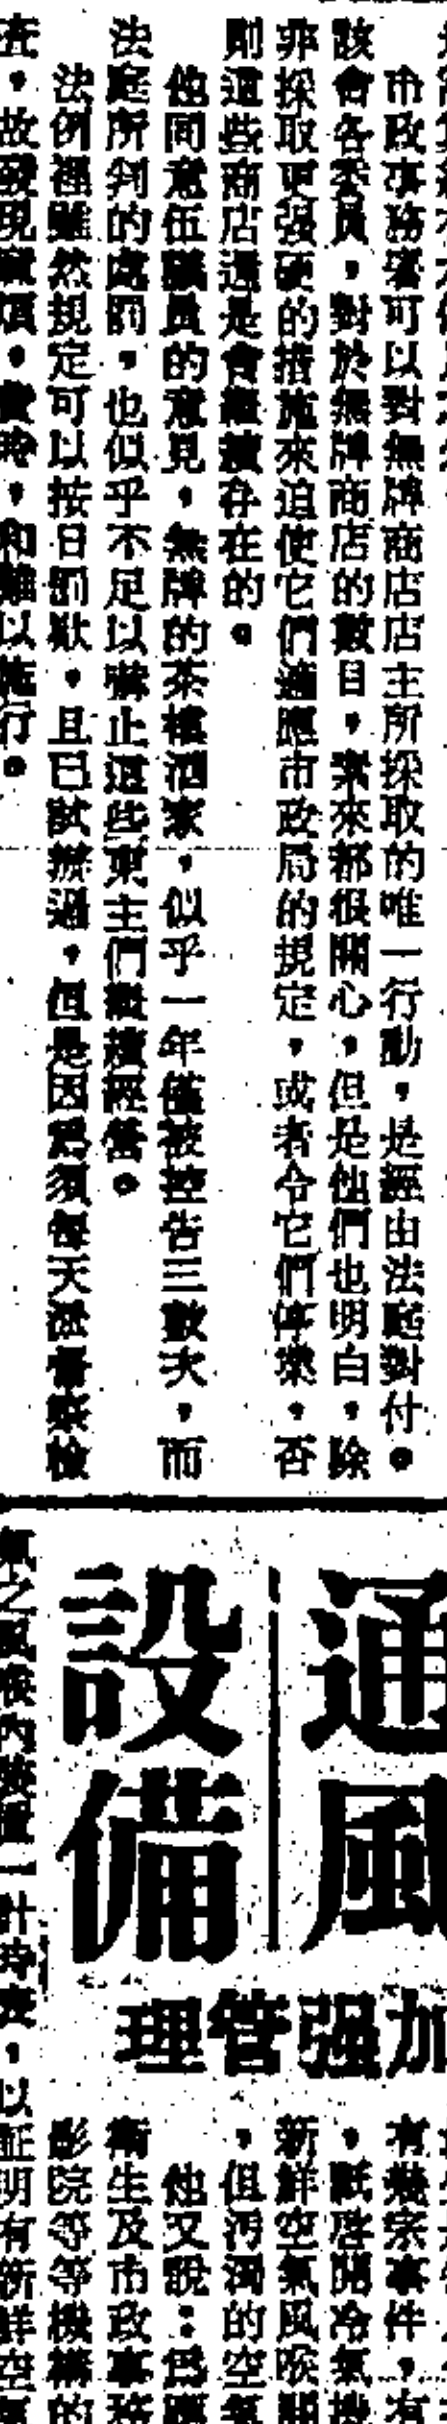 市政事務署可以對無牌商店店主所採取的唯一行動，是經由法庭對付。
該會各委員，對於無牌商店的數目，素來都很關心，但是他們也明白，除
非採取更强硬的措施來迫使它們適應市政局的規定，或者令它們停業，否
則這些商店還是會繼續存在的。
他同意伍議員的意見，無牌的茶樓酒家，似乎一年僅被控告三數次，而
法庭所判的處罰，也似乎不足以禁止這些東主們繼續經營。
法例裡雖然規定可以按日罰欵，且已試辦過，但是因爲須每天派督察檢
查，故發現實煩，費時，和難以施行。
通風
設備
加强管理
有幾宗事件，有
，祇啓開冷氣機
新鮮空氣風喉關
，但汚濁的空氣
他又說：爲應
衛生及市政事務
影院等等機構的
氣之風喉內裝置一計時表，以証明有新鮮空氣